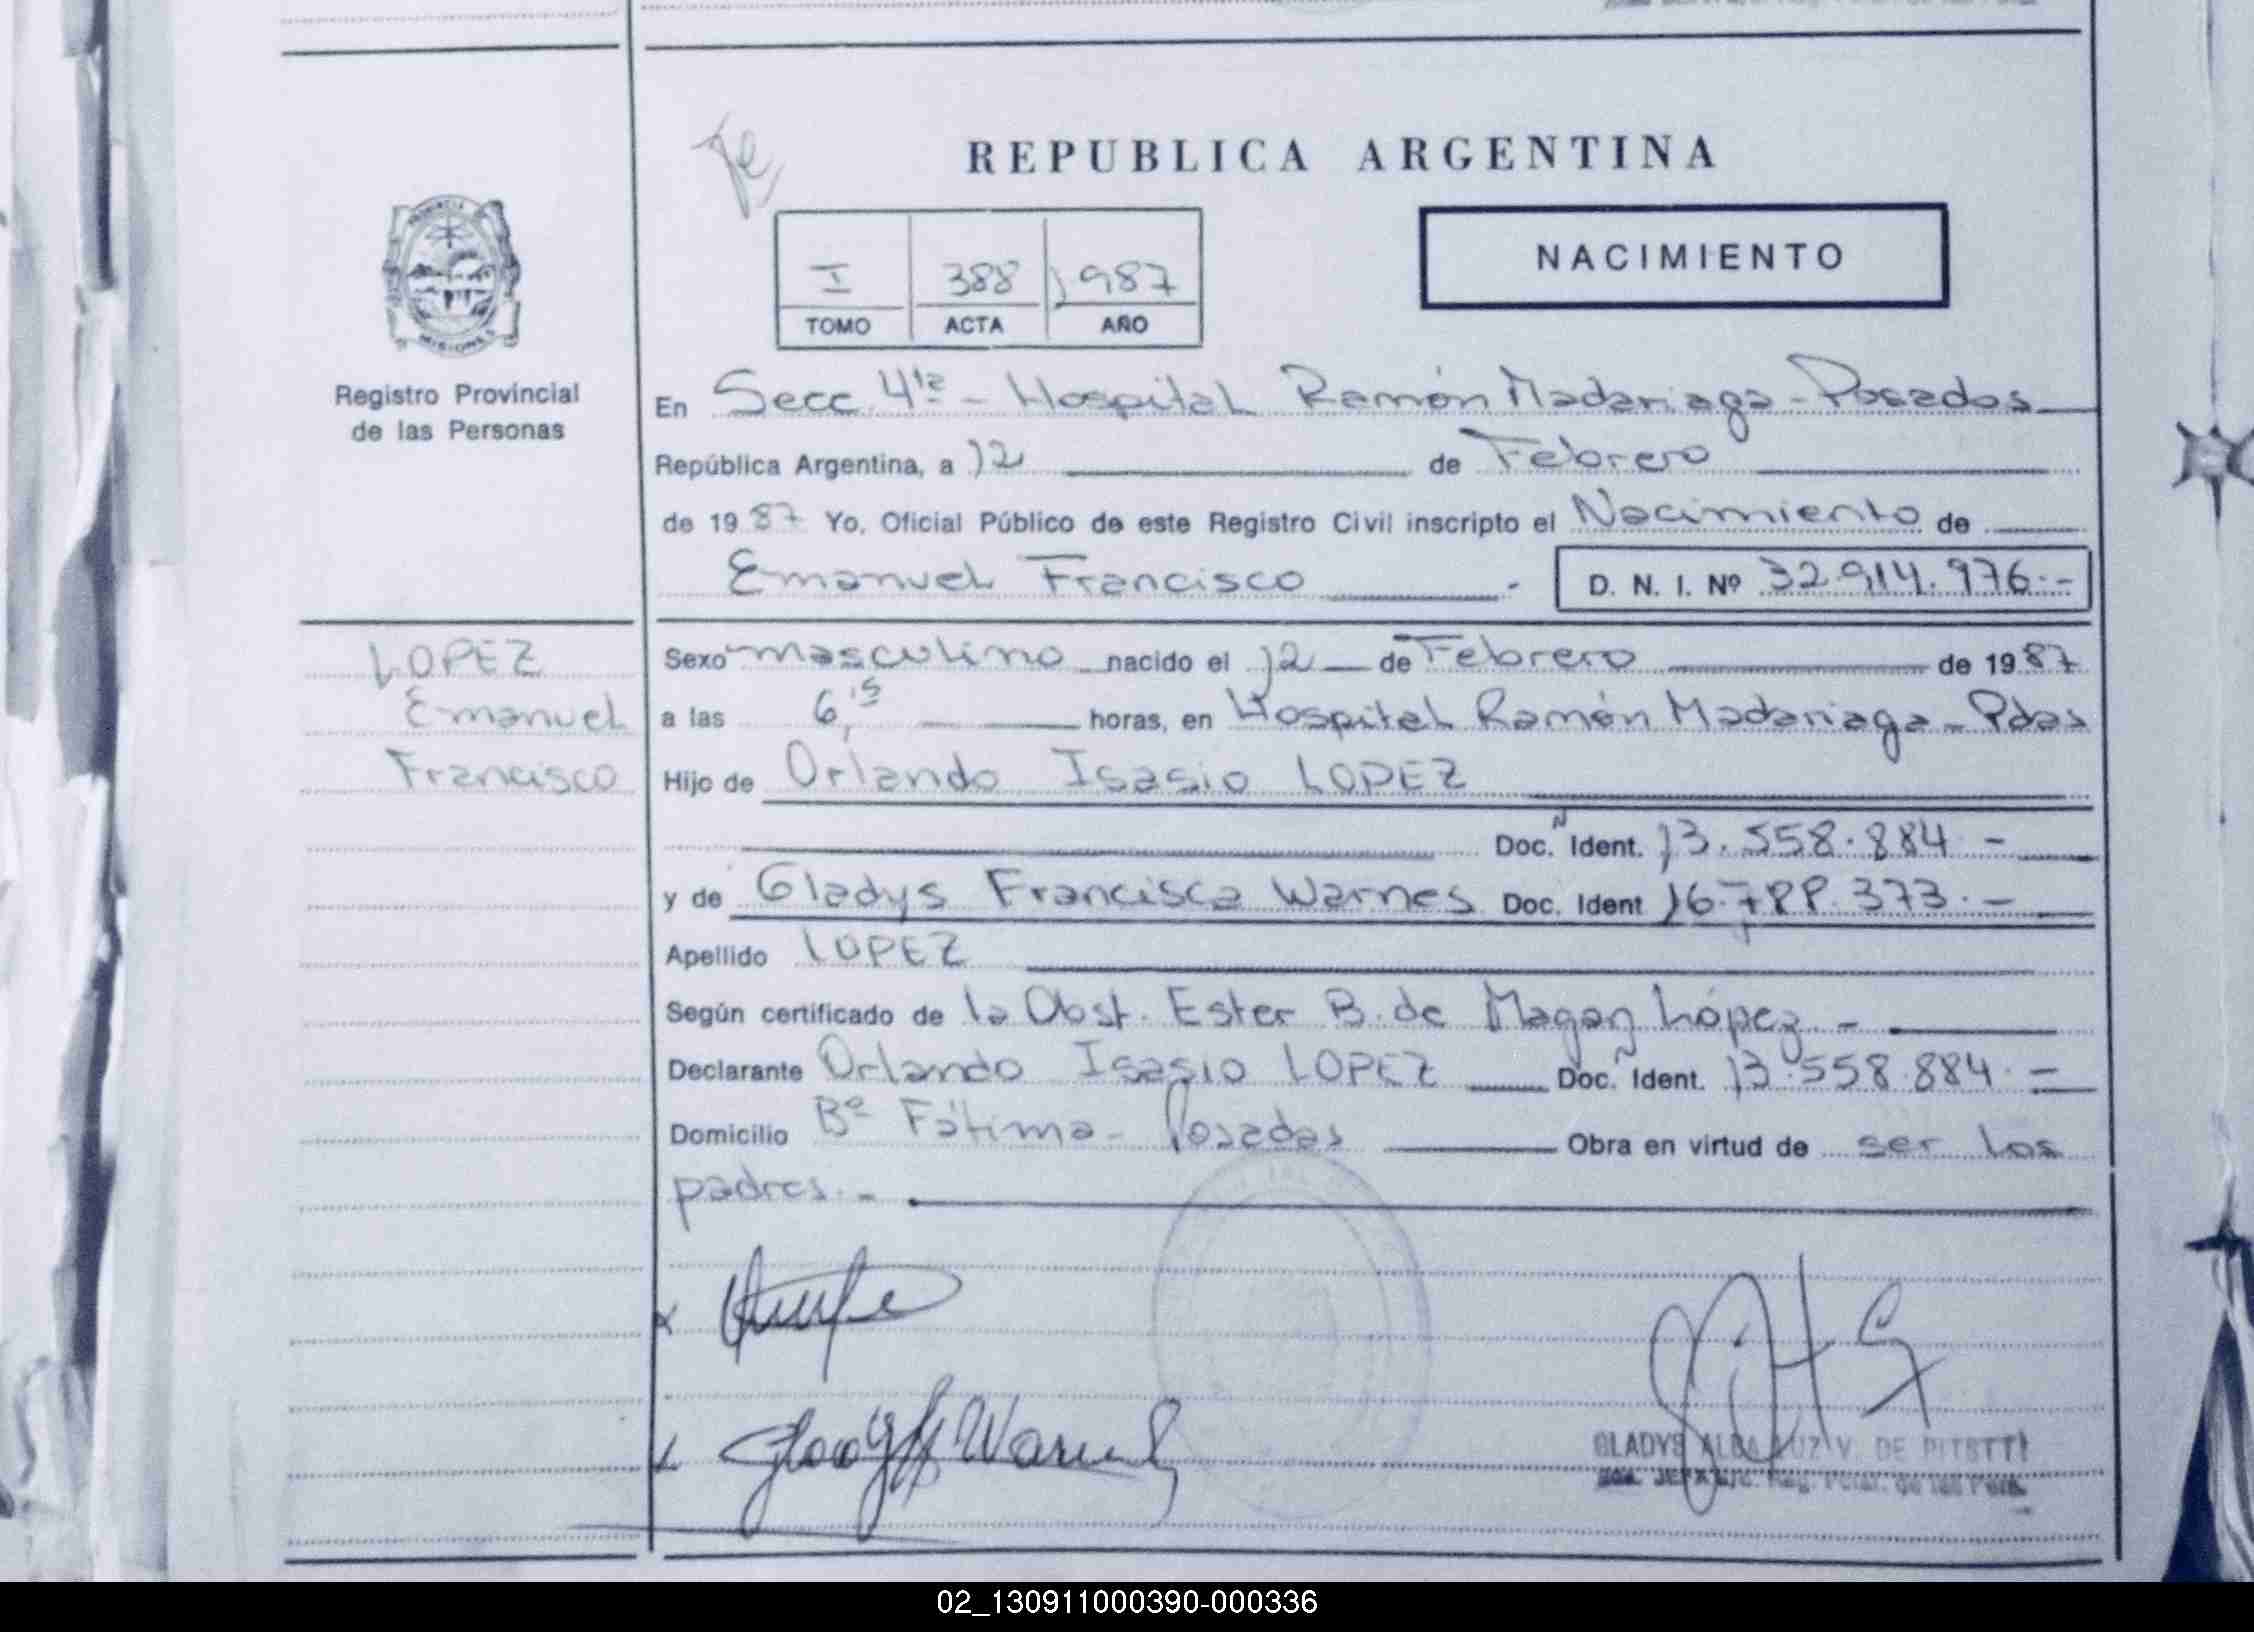 REPUBLICA ARGENTINA
NACIMIENTO
I 388 1987
TOMO ACTA AÑO
PROVINCIA
MISIONES
Registro Provincial
de las Personas
En Secc 4ta - Hospital Ramón Madariaga - Posadas
República Argentina, a 12 de Febrero
de 1987 Yo, Oficial Público de este Registro Civil inscripto el Nacimiento de
Emanuel Francisco D. N. I. Nº 32.914.976.-
LOPEZ
Emanuel
Francisco
Sexo masculino nacido el 12 de Febrero de 1987
a las 6,15 horas, en Hospital Ramón Madariaga - Pdas
Hijo de Orlando Isasio LOPEZ
Doc. Ident. 13.558.884 -
y de Gladys Francisca Warnes Doc. Ident 16.788.373.-
Apellido LOPEZ
Según certificado de la Obst. Ester B. de Magan López -
Declarante Orlando Isasio LOPEZ Doc. Ident. 13.558.884.=
Domicilio Bº Fátima - Posadas Obra en virtud de ser los
padres. -
GLADYS ALBA LUZ V. DE
02_130911000390-000336